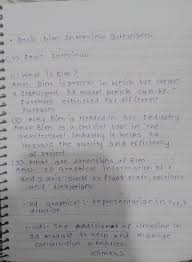 • Basic bim Interview Questions
Interview
(1) What is Bim?
Ans: Bim is process in which we create
a intelligent 3d model which can be
further extracted for different
Purposes
(2) Why Bim is Needed in Aec Industry
Bim is a crucial tool in the
architectural industry it helps to
improve the quality and efficiency
of project
(3) What are dimensions of Bim
Ans: 2D Graphical information of
such as floor plan, sections
and elevations
3d graphical representation in x,y,z
direction
4d: The addition of timeline in
3d model to help and manage
construction schedules